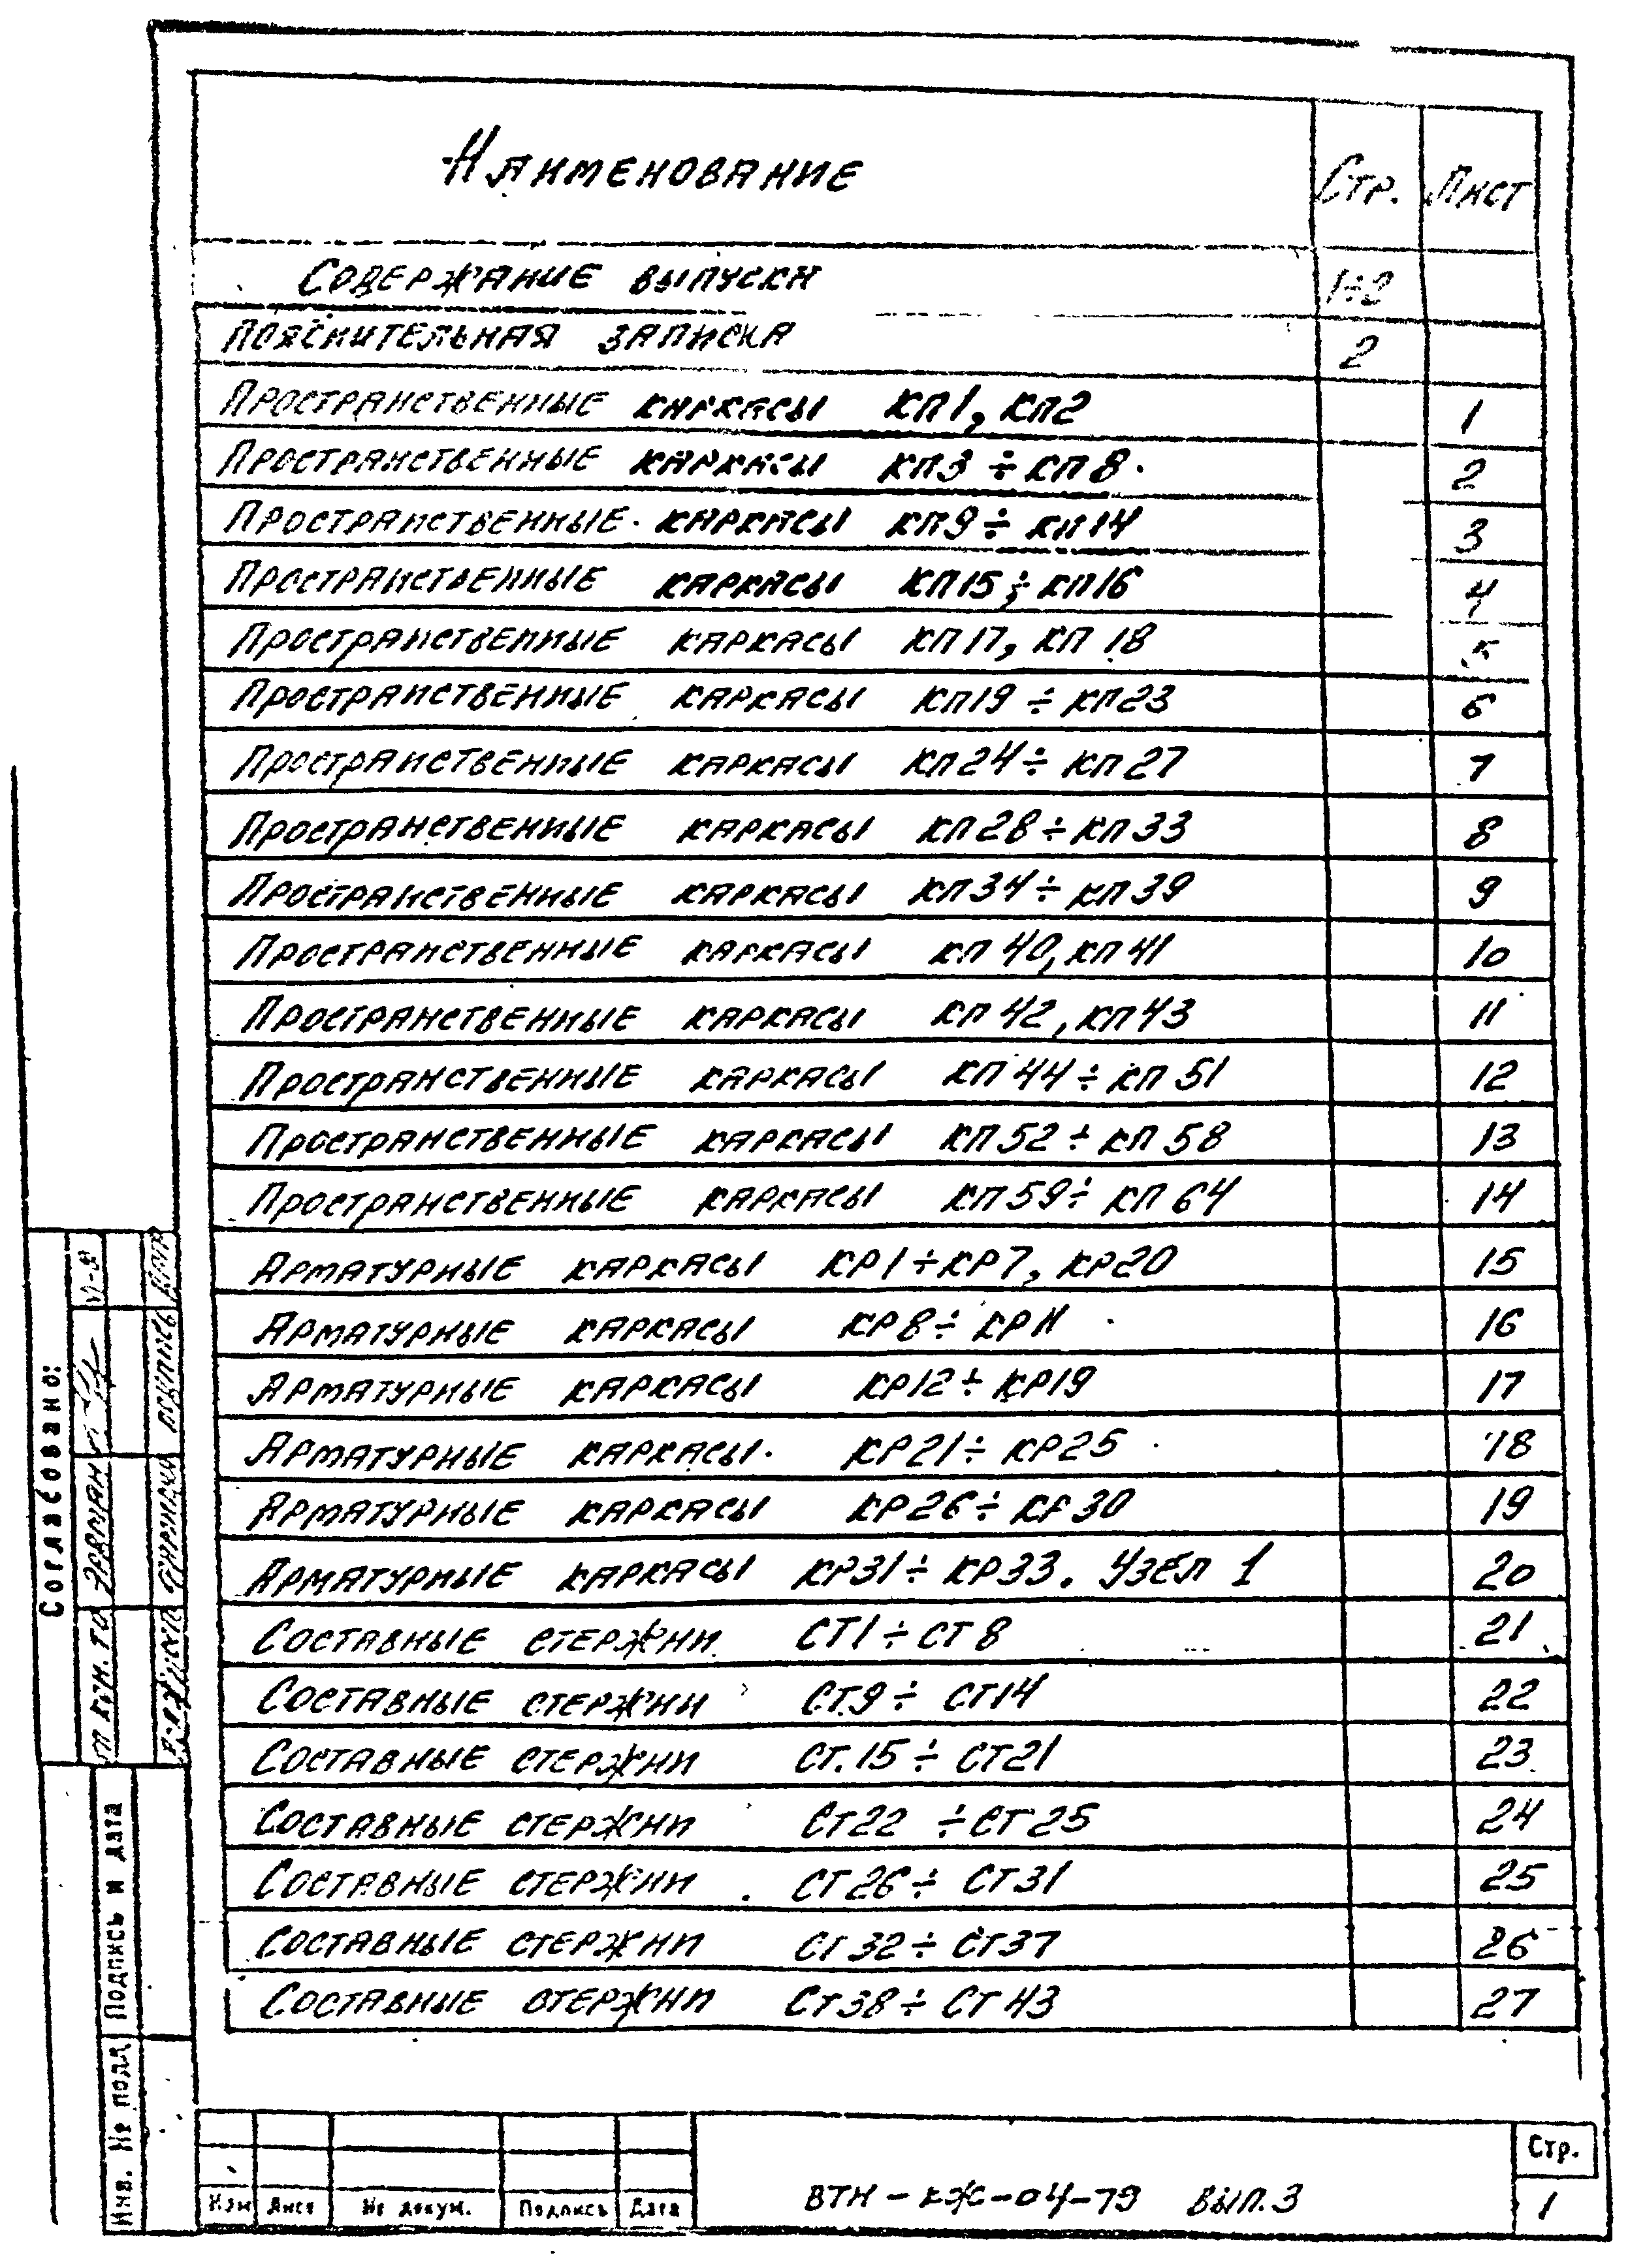 Наименование Стр. Лист
Содержание выпуска 1÷2
Пояснительная записка 2
Пространственные каркасы КП1, КП2 1
Пространственные каркасы КП3 ÷ КП8 2
Пространственные каркасы КП9 ÷ КП14 3
Пространственные каркасы КП15 ÷ КП16 4
Пространственные каркасы КП17, КП18 5
Пространственные каркасы КП19 ÷ КП23 6
Пространственные каркасы КП24 ÷ КП27 7
Пространственные каркасы КП28 ÷ КП33 8
Пространственные каркасы КП34 ÷ КП39 9
Пространственные каркасы КП40, КП41 10
Пространственные каркасы КП42, КП43 11
Пространственные каркасы КП44 ÷ КП51 12
Пространственные каркасы КП52 ÷ КП58 13
Пространственные каркасы КП59 ÷ КП64 14
Арматурные каркасы КР1 ÷ КР7, КР20 15
Арматурные каркасы КР8 ÷ КР11 16
Арматурные каркасы КР12 ÷ КР19 17
Арматурные каркасы КР21 ÷ КР25 18
Арматурные каркасы КР26 ÷ КР30 19
Арматурные каркасы КР31 ÷ КР33. Узел 1 20
Составные стержни СТ1 ÷ СТ8 21
Составные стержни СТ.9 ÷ СТ14 22
Составные стержни СТ.15 ÷ СТ21 23
Составные стержни СТ22 ÷ СТ25 24
Составные стержни СТ26 ÷ СТ31 25
Составные стержни СТ32 ÷ СТ37 26
Составные стержни СТ38 ÷ СТ43 27
Согласовано:
Подпись и дата
Инв. № подл
Изм Лист № докум. Подпись Дата
ВТН-КЖ-04-79 Вып. 3
Стр.
1